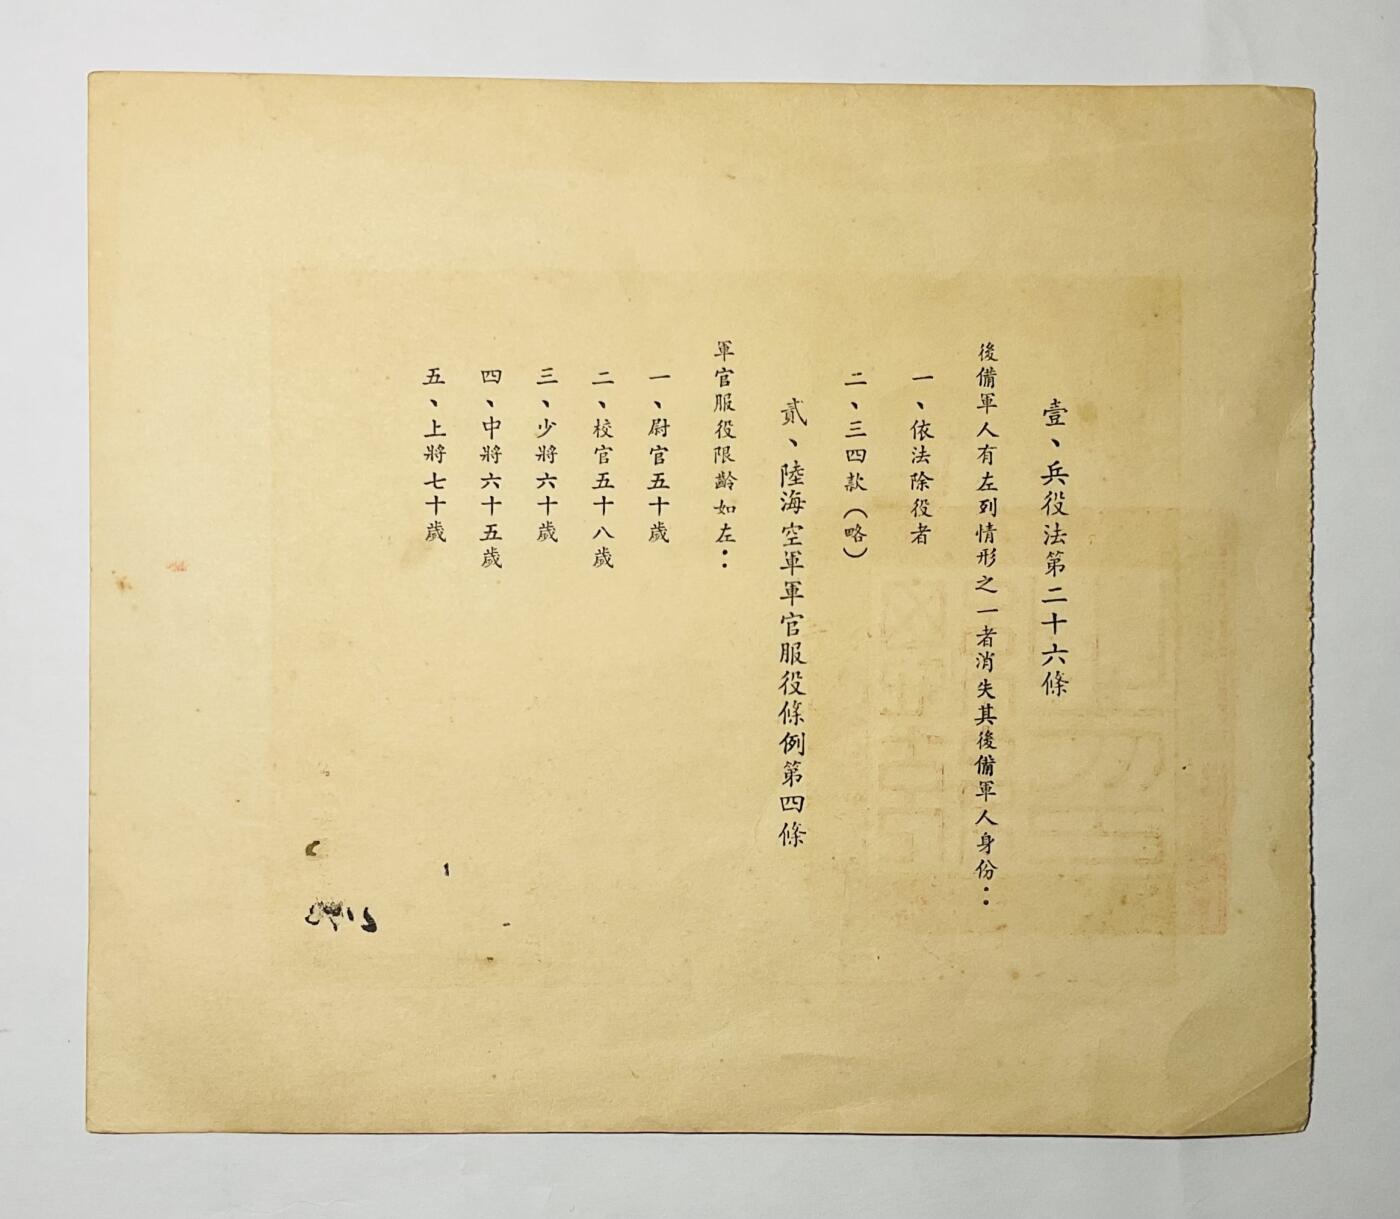 壹、兵役法第二十六條
後備軍人有左列情形之一者消失其後備軍人身份：
一、依法除役者
二、三四款（略）
貳、陸海空軍軍官服役條例第四條
軍官服役限齡如左：
一、尉官五十歲
二、校官五十八歲
三、少將六十歲
四、中將六十五歲
五、上將七十歲